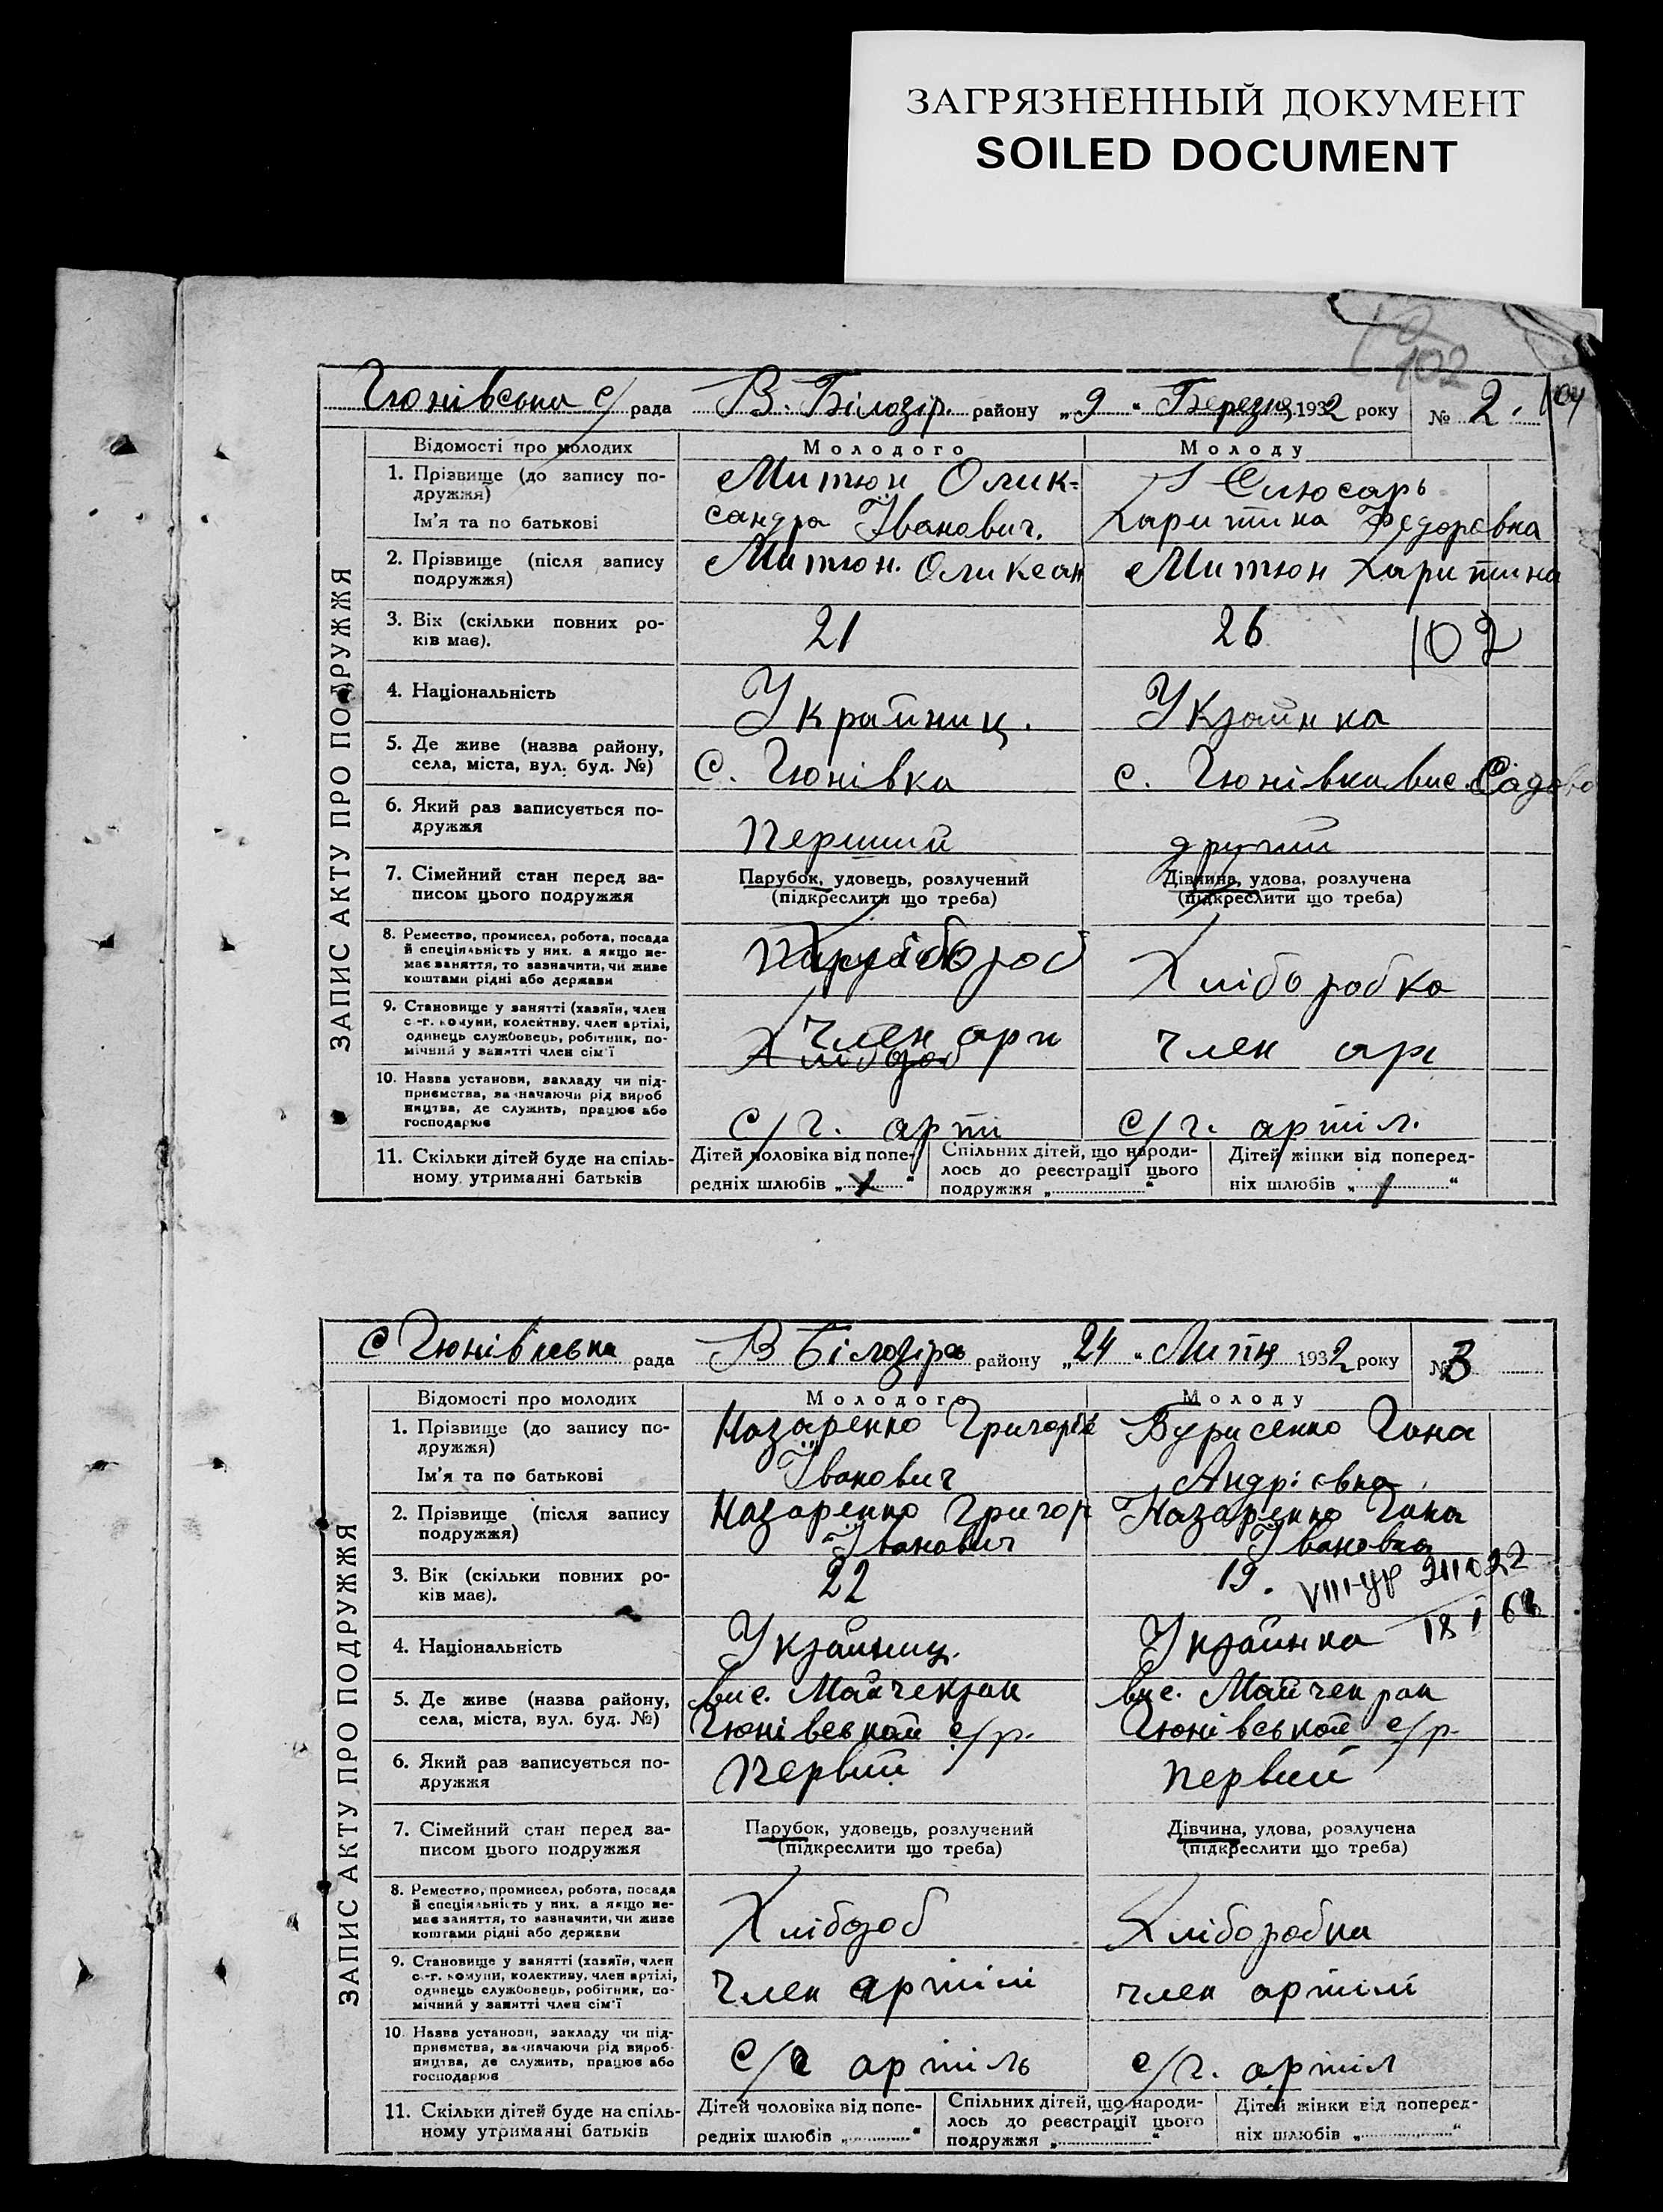 ЗАГРЯЗНЕННЫЙ ДОКУМЕНТ
SOILED DOCUMENT
102
Гюнівська с/ рада В. Білозір. району „9“ Березня 1932 року № 2. 104
ЗАПИС АКТУ ПРО ПОДРУЖЖЯ
Відомості про молодих Молодого Молоду
1. Прізвище (до запису по- Митюн Олик- Слюсарь
дружжя)
Ім'я та по батькові сандра Іванович. Харитина Федоровна
2. Прізвище (після запису Митюн. Оликсан Митюн Харитина
подружжя)
3. Вік (скільки повних ро- 21 26 102
ків має).
4. Національність Украйниц. Украйнка
5. Де живе (назва району, с. Гюнівка с. Гюнівка вис. Садово
села, міста, вул. буд. №)
6. Який раз записується по- Перший другий
дружжя
7. Сімейний стан перед за- Парубок, удовець, розлучений Дівчина, удова, розлучена
писом цього подружжя (підкреслити що треба) (підкреслити що треба)
8. Ремество, промисел, робота, посада
й спеціяльність у них, а якщо не- Хлібороб Хліборобка
має заняття, то зазначити, чи живе
коштами рідні або держави
9. Становище у занятті (хазяїн, член
с.-г. комуни, колективу, член артілі, Член арт член арт
одинець службовець, робітник, по- Хлібороб
мічний у занятті член сім'ї
10. Назва установи, закладу чи під-
приємства, зазначаючи рід вироб
ництва, де служить, працює або с/г. арті с/г. артіл.
господарює
11. Скільки дітей буде на спіль- Дітей чоловіка від попе- Спільних дітей, що народи- Дітей жінки від поперед-
ному утриманні батьків редніх шлюбів „ “ лось до реєстрації цього ніх шлюбів „ 1 “
подружжя „ “
с Гюнівська рада В Білозірсь району „24“ Липня 1932 року № 3
ЗАПИС АКТУ ПРО ПОДРУЖЖЯ
Відомості про молодих Молодого Молоду
1. Прізвище (до запису по- Назаренко Григорій Бурисенко Гана
дружжя)
Ім'я та по батькові Іванович Андрієвна
2. Прізвище (після запису Назаренко Григор Назаренко Гана
подружжя) Іванович Івановна
3. Вік (скільки повних ро- 22 19. VIII-УР 211022
ків має). 18 I 68
4. Національність Украйниц. Украйнка
5. Де живе (назва району, вис. Майчекрак вис. Майчекрак
села, міста, вул. буд. №) Гюнівськой с/р. Гюнівськой с/р.
6. Який раз записується по- Первий первий
дружжя
7. Сімейний стан перед за- Парубок, удовець, розлучений Дівчина, удова, розлучена
писом цього подружжя (підкреслити що треба) (підкреслити що треба)
8. Ремество, промисел, робота, посада
й спеціяльність у них, а якщо не- Хлібороб Хліборобка
має заняття, то зазначити, чи живе
коштами рідні або держави
9. Становище у занятті (хазяїн, член
с.-г. комуни, колективу, член артілі, Член артілі член артілі
одинець службовець, робітник, по-
мічний у занятті член сім'ї
10. Назва установи, закладу чи під-
приємства, зазначаючи рід вироб-
ництва, де служить, працює або с/г артіль с/г. артіл
господарює
11. Скільки дітей буде на спіль- Дітей чоловіка від попе- Спільних дітей, що народи- Дітей жінки від поперед-
ному утриманні батьків редніх шлюбів „ “ лось до реєстрації цього ніх шлюбів „ “
подружжя „ “